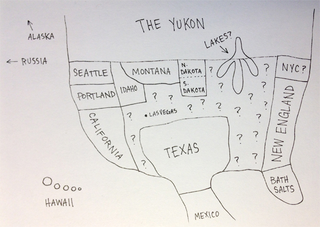 THE YUKON
LAKES?
ALASKA
RUSSIA
SEATTLE
MONTANA
N.
DAKOTA
?
?
NYC?
PORTLAND
IDAHO
S.
DAKOTA
?
?
?
?
?
?
LAS VEGAS
?
?
?
?
?
?
?
?
?
?
CALIFORNIA
TEXAS
NEW ENGLAND
BATH
SALTS
HAWAII
MEXICO